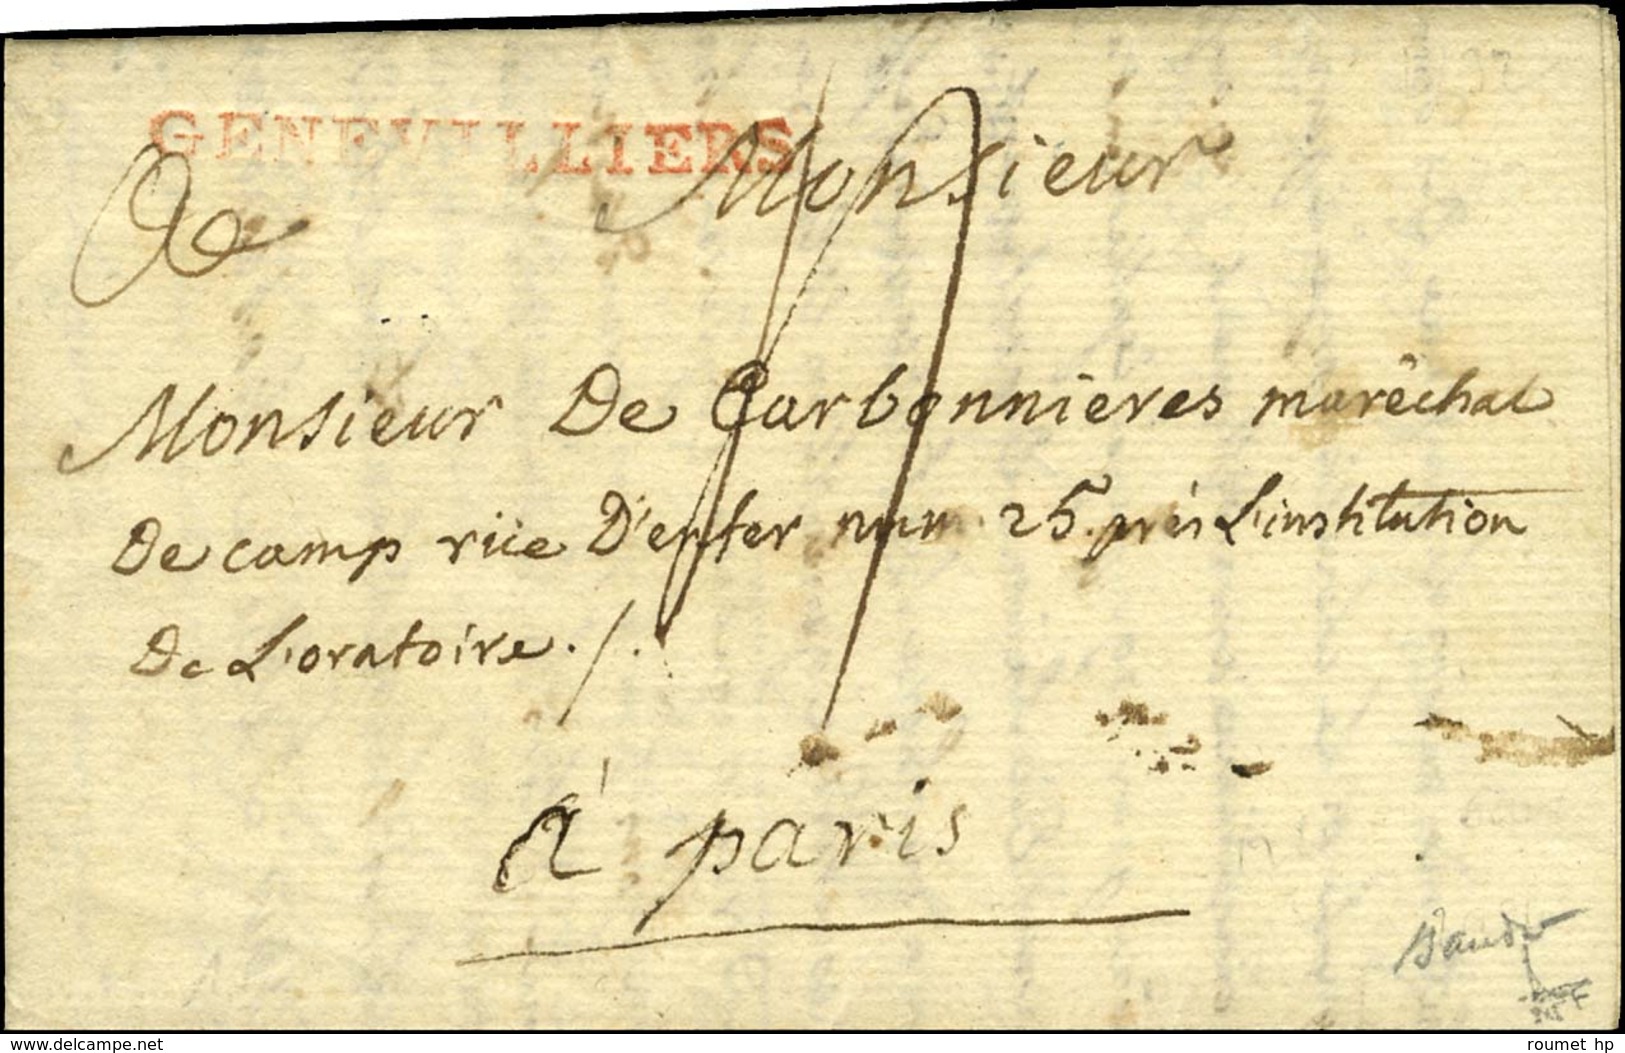 GENEVILLIERS
a Monsieur
Monsieur De Carbonnieres maréchal
De camp rüe D'enfer num. 25. près L'institution
De L'oratoire ./.
à paris
www.delcampe.net
roumet hp